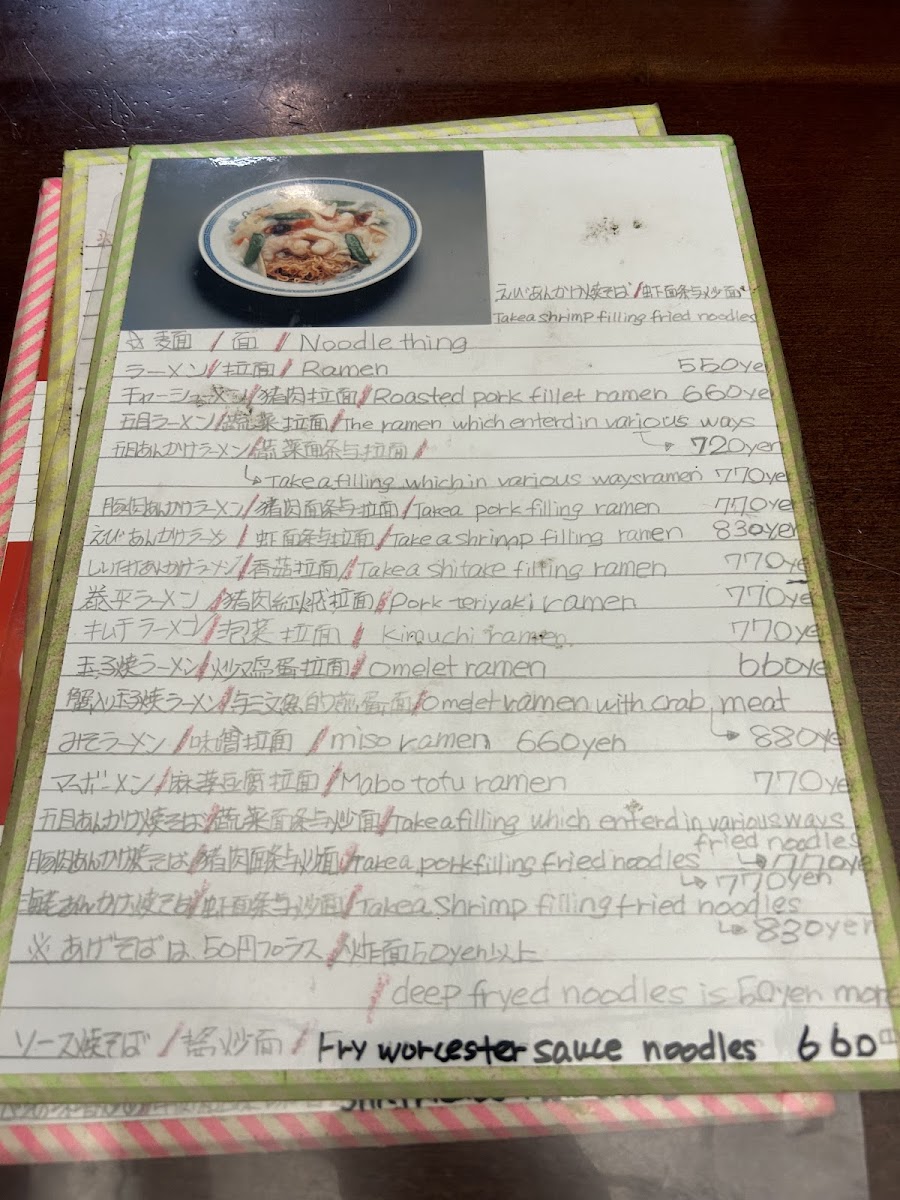 えびあんかけ焼そば/虾面条与炒面
Take a shrimp filling fried noodles
☆ 麺 / 面 / Noodle thing
ラーメン/拉面/Ramen 550ye
チャーシューメン/猪肉拉面/Roasted pork fillet ramen 660ye
五目ラーメン/蔬菜拉面/The ramen which enterd in various ways
五目あんかけラーメン/蔬菜面条与拉面/ 720yen
Take a filling which in various ways ramen 770yen
豚肉あんかけラーメン/猪肉面条与拉面/Take a pork filling ramen 770yen
えびあんかけラーメン/虾面条与拉面/Take a shrimp filling ramen 830yen
しいたけあんかけラーメン/香菇拉面/Take a shitake filling ramen 770ye
ラーメン/猪肉红烧拉面/Pork teriyaki ramen 770ye
キムチラーメン/泡菜拉面/kimuchi ramen 770ye
玉子焼ラーメン/炒鸡蛋拉面/Omelet ramen 660ye
蟹入り玉子焼ラーメン/与三文魚的煎蛋面/Omelet ramen with crab meat
880ye
みそラーメン/味噌拉面/miso ramen 660yen
マーボーメン/麻婆豆腐拉面/Mabo tofu ramen 770ye
五目あんかけ焼そば/蔬菜面条与炒面/Take a filling which enterd in various ways
fried noodles
豚肉あんかけ焼そば/猪肉面条与炒面/Take a pork filling fried noodles 770ye
770yen
海老あんかけ焼そば/虾面条与炒面/Take a Shrimp filling fried noodles
830yen
※あげそばは50円プラス/炸面50yen以上
/deep fryed noodles is 50yen more
ソース焼そば / 炒面 / Fry worcester sauce noodles 660円